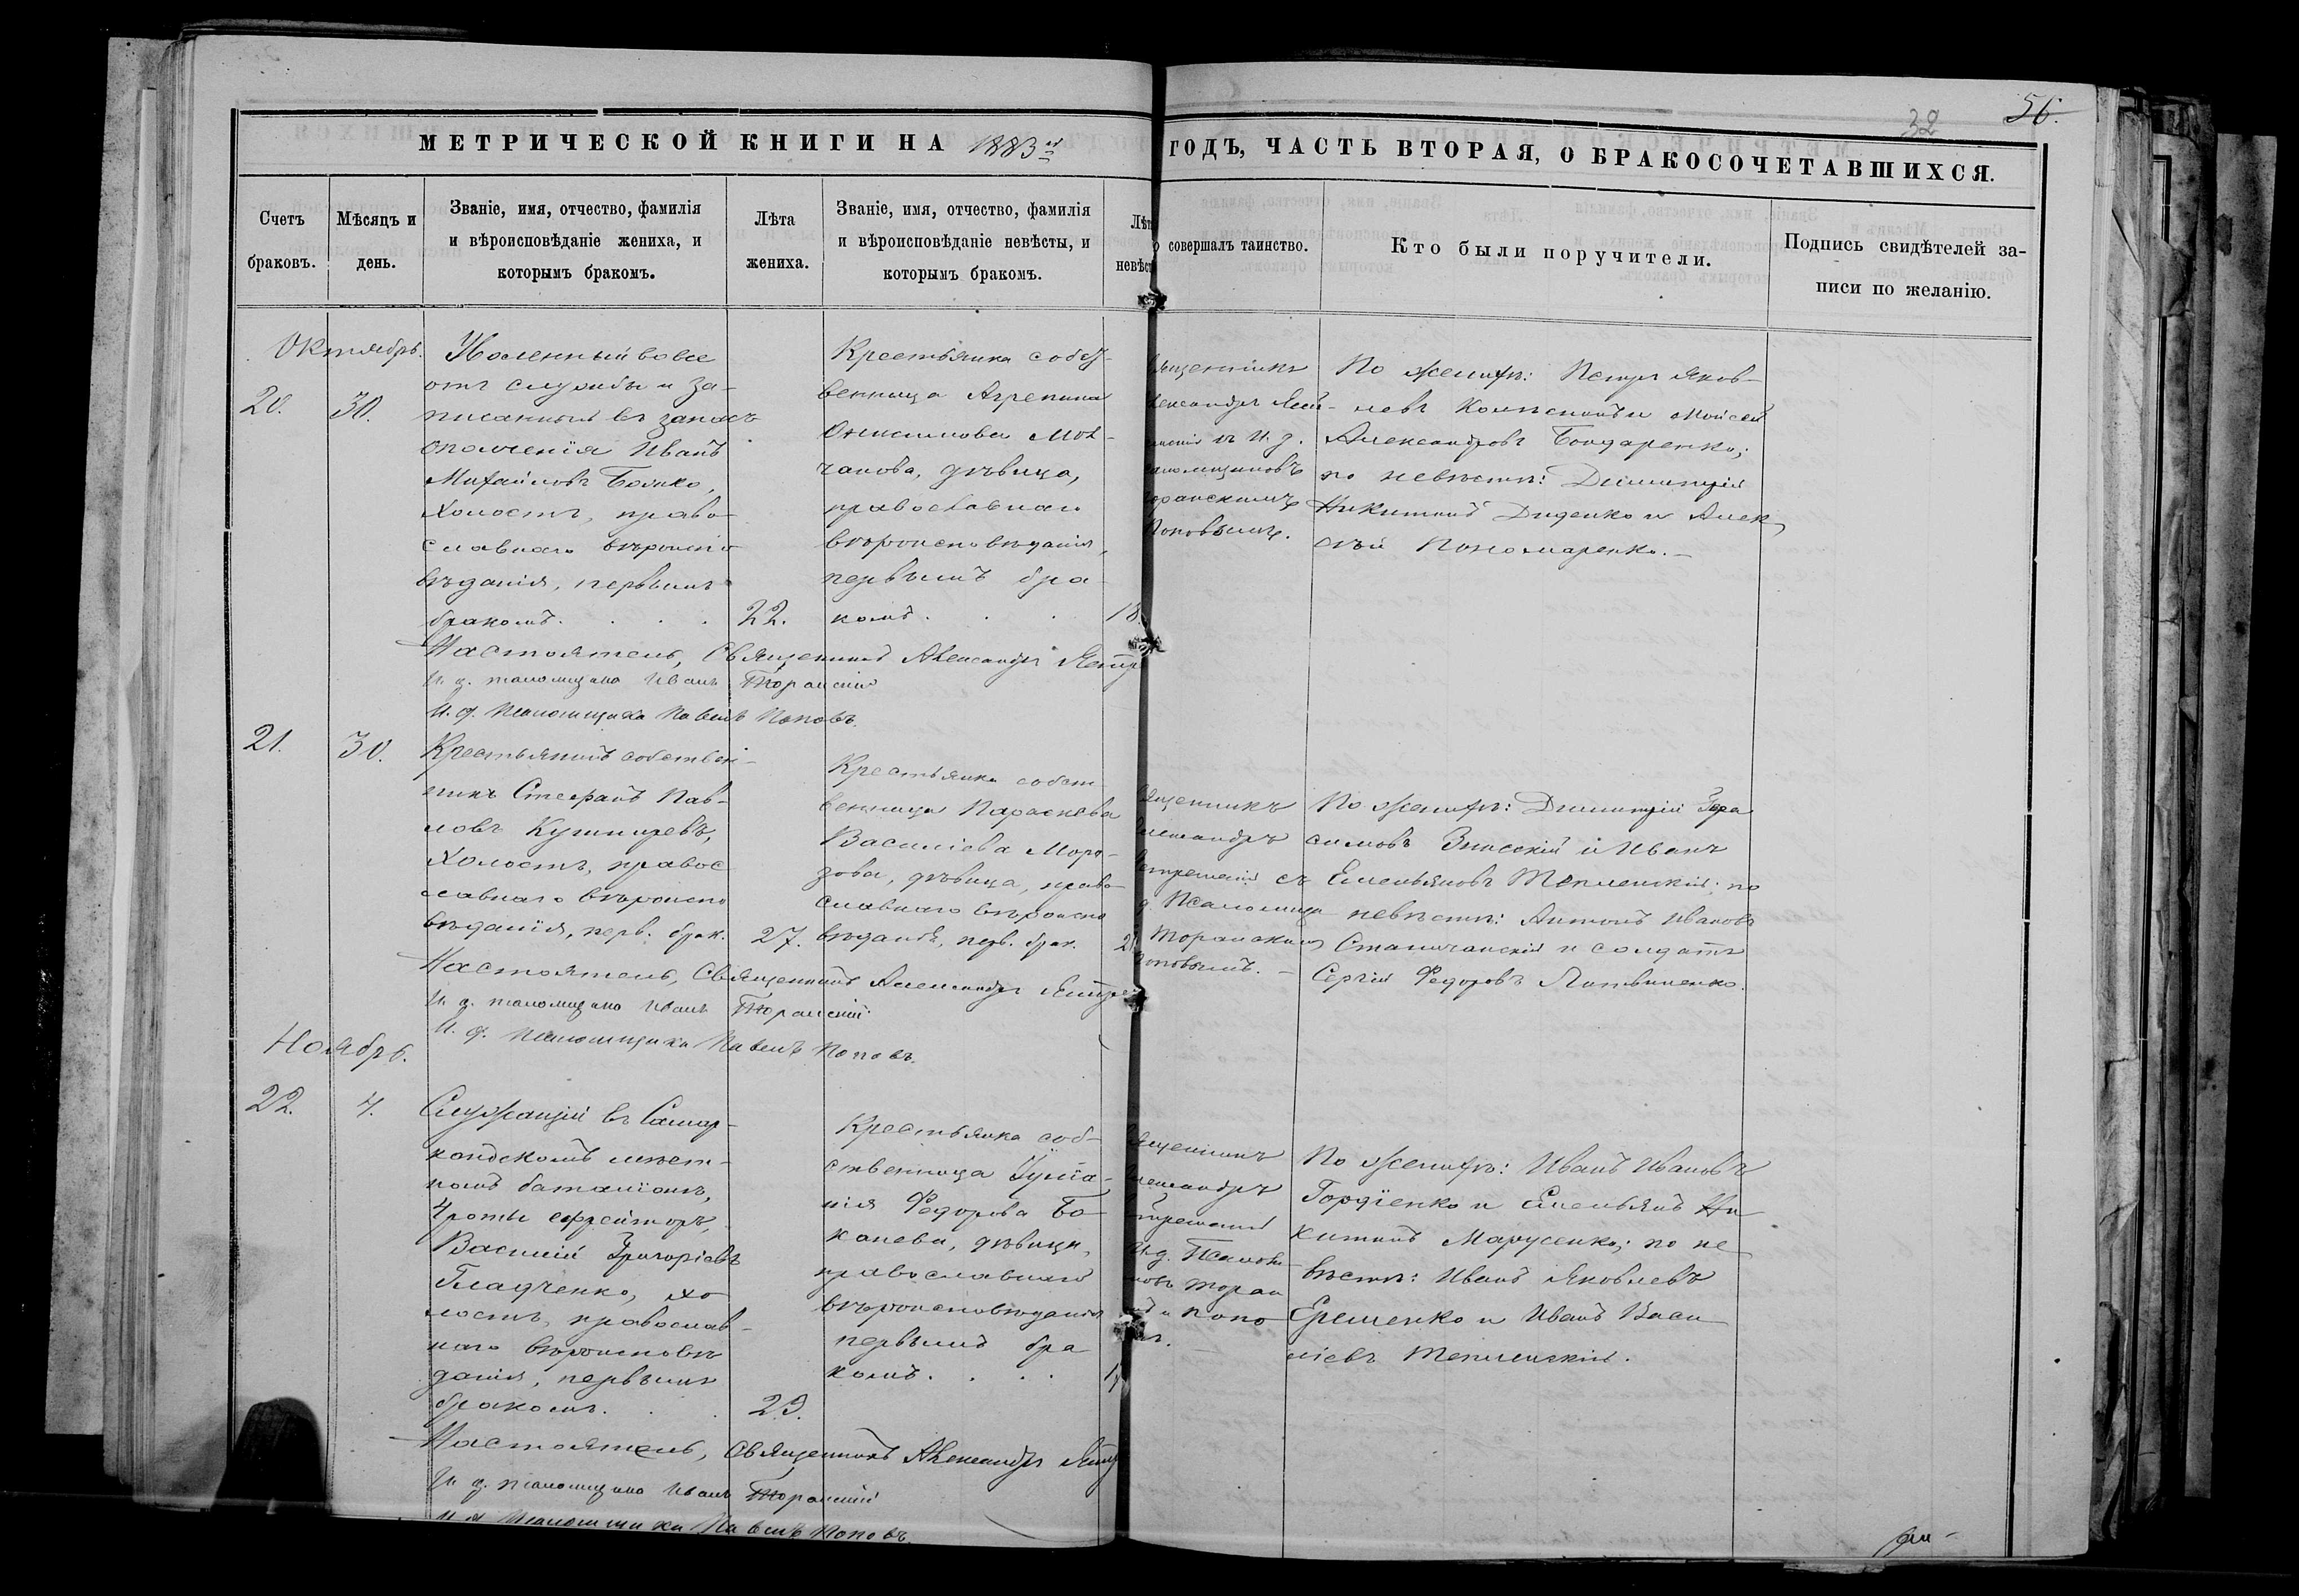 32 56.
МЕТРИЧЕСКОЙ КНИГИ НА 1883й ГОДЪ, ЧАСТЬ ВТОРАЯ, О БРАКОСОЧЕТАВШИХСЯ.
Счетъ
браковъ.
Мѣсяцъ и
день.
Званіе, имя, отчество, фамилія
и вѣроисповѣданіе жениха, и
которымъ бракомъ.
Лѣта
жениха.
Званіе, имя, отчество, фамилія
и вѣроисповѣданіе невѣсты, и
которымъ бракомъ.
Лѣт
невѣс
совершалъ таинство.
Кто были поручители.
Подпись свидѣтелей за-
писи по желанію.
Октябрь.
20.
30.
Уволенный вовсе
отъ службы и за-
писанный въ запасъ
ополченія Иванъ
Михайловъ Бойко,
холостъ, право
славнаго вѣроиспо
вѣданія, первымъ
бракомъ.
22.
Крестьянка собст-
венница Агрепина
Онисимова Мол-
чанова, дѣвица,
православнаго
вѣроисповѣданія,
первымъ бра
комъ.
18.
вященникъ
лександръ
и И. д.
саломщиковъ
Поповымъ.
По женихѣ: Петръ Яков-
левъ и Моисей
Александровъ Бондаренко;
по невѣстѣ: Димитрій
Никитинъ Диденко и Алек
сѣй Пономаренко.
Настоятель, Священникъ Александръ
И. д. псаломщика Иванъ Торанскій
И. д. Псаломщика Павелъ Поповъ.
21.
30.
Крестьянинъ собствен-
никъ Стефанъ Пав-
ловъ Кушниревъ,
холостъ, правос
лавнаго вѣроиспо
вѣданія, перв. брак.
27.
Крестьянка собст
венница Параскева
Василіева Моро-
зова, дѣвица, право-
славнаго вѣроиспо
вѣданія, перв. брак.
2
вященникъ
лександръ
съ
д. Псаломщи
Торанским
оповымъ.
По женихѣ: Димитрій Гера
симовъ и Иванъ
Емельяновъ Теплинскій; по
невѣстѣ: Антонъ Ивановъ
Станичанскій и солдатъ
Сергій Федоровъ Литвиненко.
Настоятель, Священникъ Александръ
И. д. псаломщика Иванъ Торанскій
И. д. Псаломщика Павелъ Поповъ.
Ноябрь.
22.
4.
Служащій въ Самар-
кандскомъ мѣст-
номъ баталіонѣ,
4 роты ефрейторъ,
Василій Григоріевъ
Гладченко, хо
лостъ, православ-
наго вѣроисповѣ
данія, первымъ
бракомъ.
29.
Крестьянка соб-
ственница Іуліа-
нія Федорова Бо
канева, дѣвица,
православнаго
вѣроисповѣданія
первымъ бра
комъ.
1
вященникъ
лександръ
И. д. Псалом
ковъ Торан
и Попо
По женихѣ: Иванъ Ивановъ
Гордіенко и Емельянъ Ни
китинъ Марусенко; по не
вѣстѣ: Иванъ Яковлевъ
Ерешенко и Иванъ Васи
ліевъ Теплинскій.
Настоятель, Священникъ Александръ
И. д. псаломщика Иванъ Торанскій
И. д. Псаломщика Павелъ Поповъ.